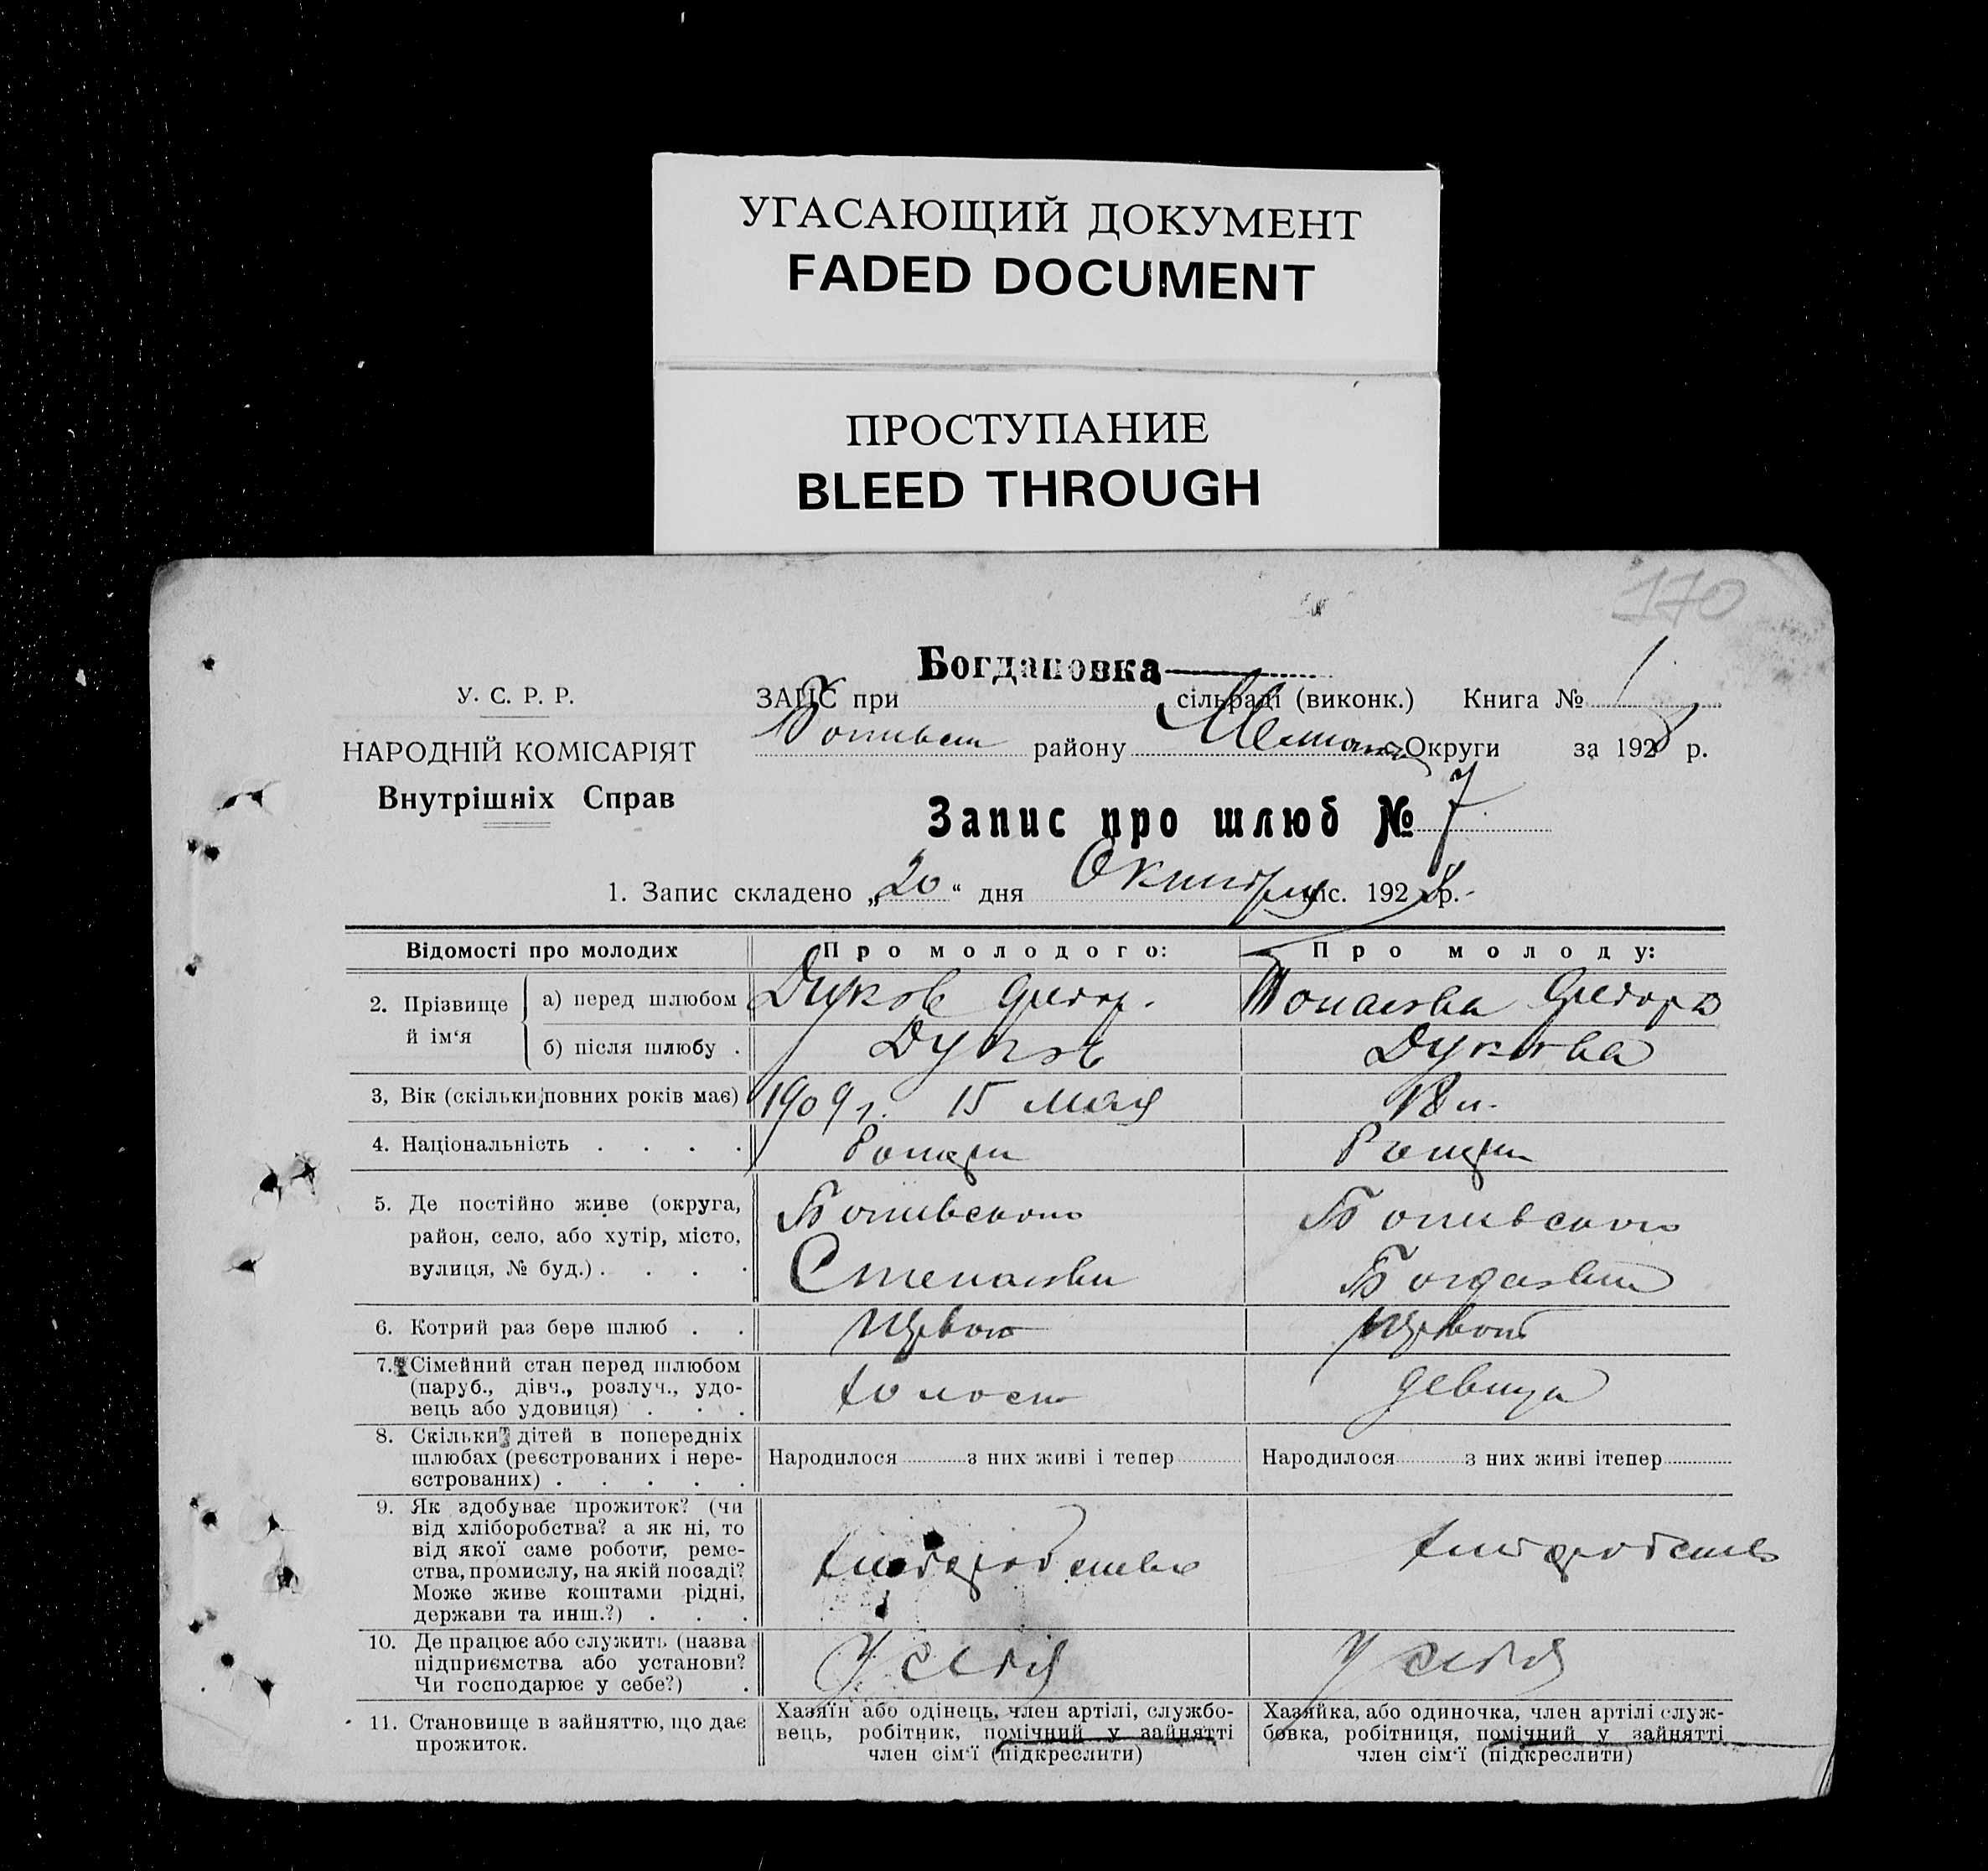 УГАСАЮЩИЙ ДОКУМЕНТ
FADED DOCUMENT
ПРОСТУПАНИЕ
BLEED THROUGH
170
Богдановка
У. С. Р. Р.
ЗАГС при сільраді (виконк.) Книга № 1
НАРОДНІЙ КОМІСАРІЯТ
району Округи за 1928 р.
Внутрішніх Справ
Запис про шлюб № 7
1. Запис складено „20“ дня Октября міс. 1928 р.
Відомості про молодих
Про молодого:
Про молоду:
2. Прізвище й ім‘я
а) перед шлюбом
Дуков Федор.
Федора
б) після шлюбу .
Дуков
Дукова
3, Вік (скільки повних років має)
1909 г. 15 мая
18 л.
4. Національність . . . .
5. Де постійно живе (округа,
район, село, або хутір, місто,
вулиця, № буд.) . . . .
Ботивського
Степановки
Ботивського
Богдановки
6. Котрий раз бере шлюб . .
Первой
Первой
7. Сімейний стан перед шлюбом
(паруб., дівч., розлуч., удо-
вець або удовиця) . . .
холост
девица
8. Скільки дітей в попередніх
шлюбах (реєстрованих і нере-
єстрованих) . . . . .
Народилося з них живі і тепер
Народилося з них живі ітепер
9. Як здобуває прожиток? (чи
від хліборобства? а як ні, то
від якої саме роботи, реме-
ства, промислу, на якій посаді?
Може живе коштами рідні,
держави та инш.?) . . .
хлеборобство
хлеборобство
10. Де працює або служить (назва
підприємства або установи?
Чи господарює у себе?) .
У себя
У себя
11. Становище в зайняттю, що дає
прожиток.
Хазяїн або одінець, член артілі, службо-
вець, робітник, помічний у зайнятті
член сім‘ї (підкреслити)
Хазяйка, або одиночка, член артілі служ-
бовка, робітниця, помічний у зайнятті
член сім‘ї (підкреслити)